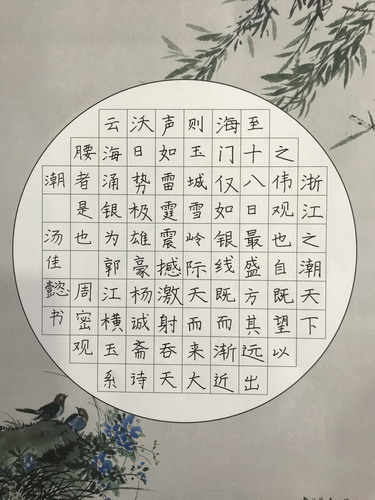 浙江之潮天下
之伟观也自既望以
至十八日最盛方其远出
海门仅如银线既而渐近
则玉城雪岭际天而来大
声如雷霆震撼激射吞天
沃日势极雄豪杨诚斋诗
云海涌银为郭江横玉系
腰者是也 周密观
潮 汤佳懿书